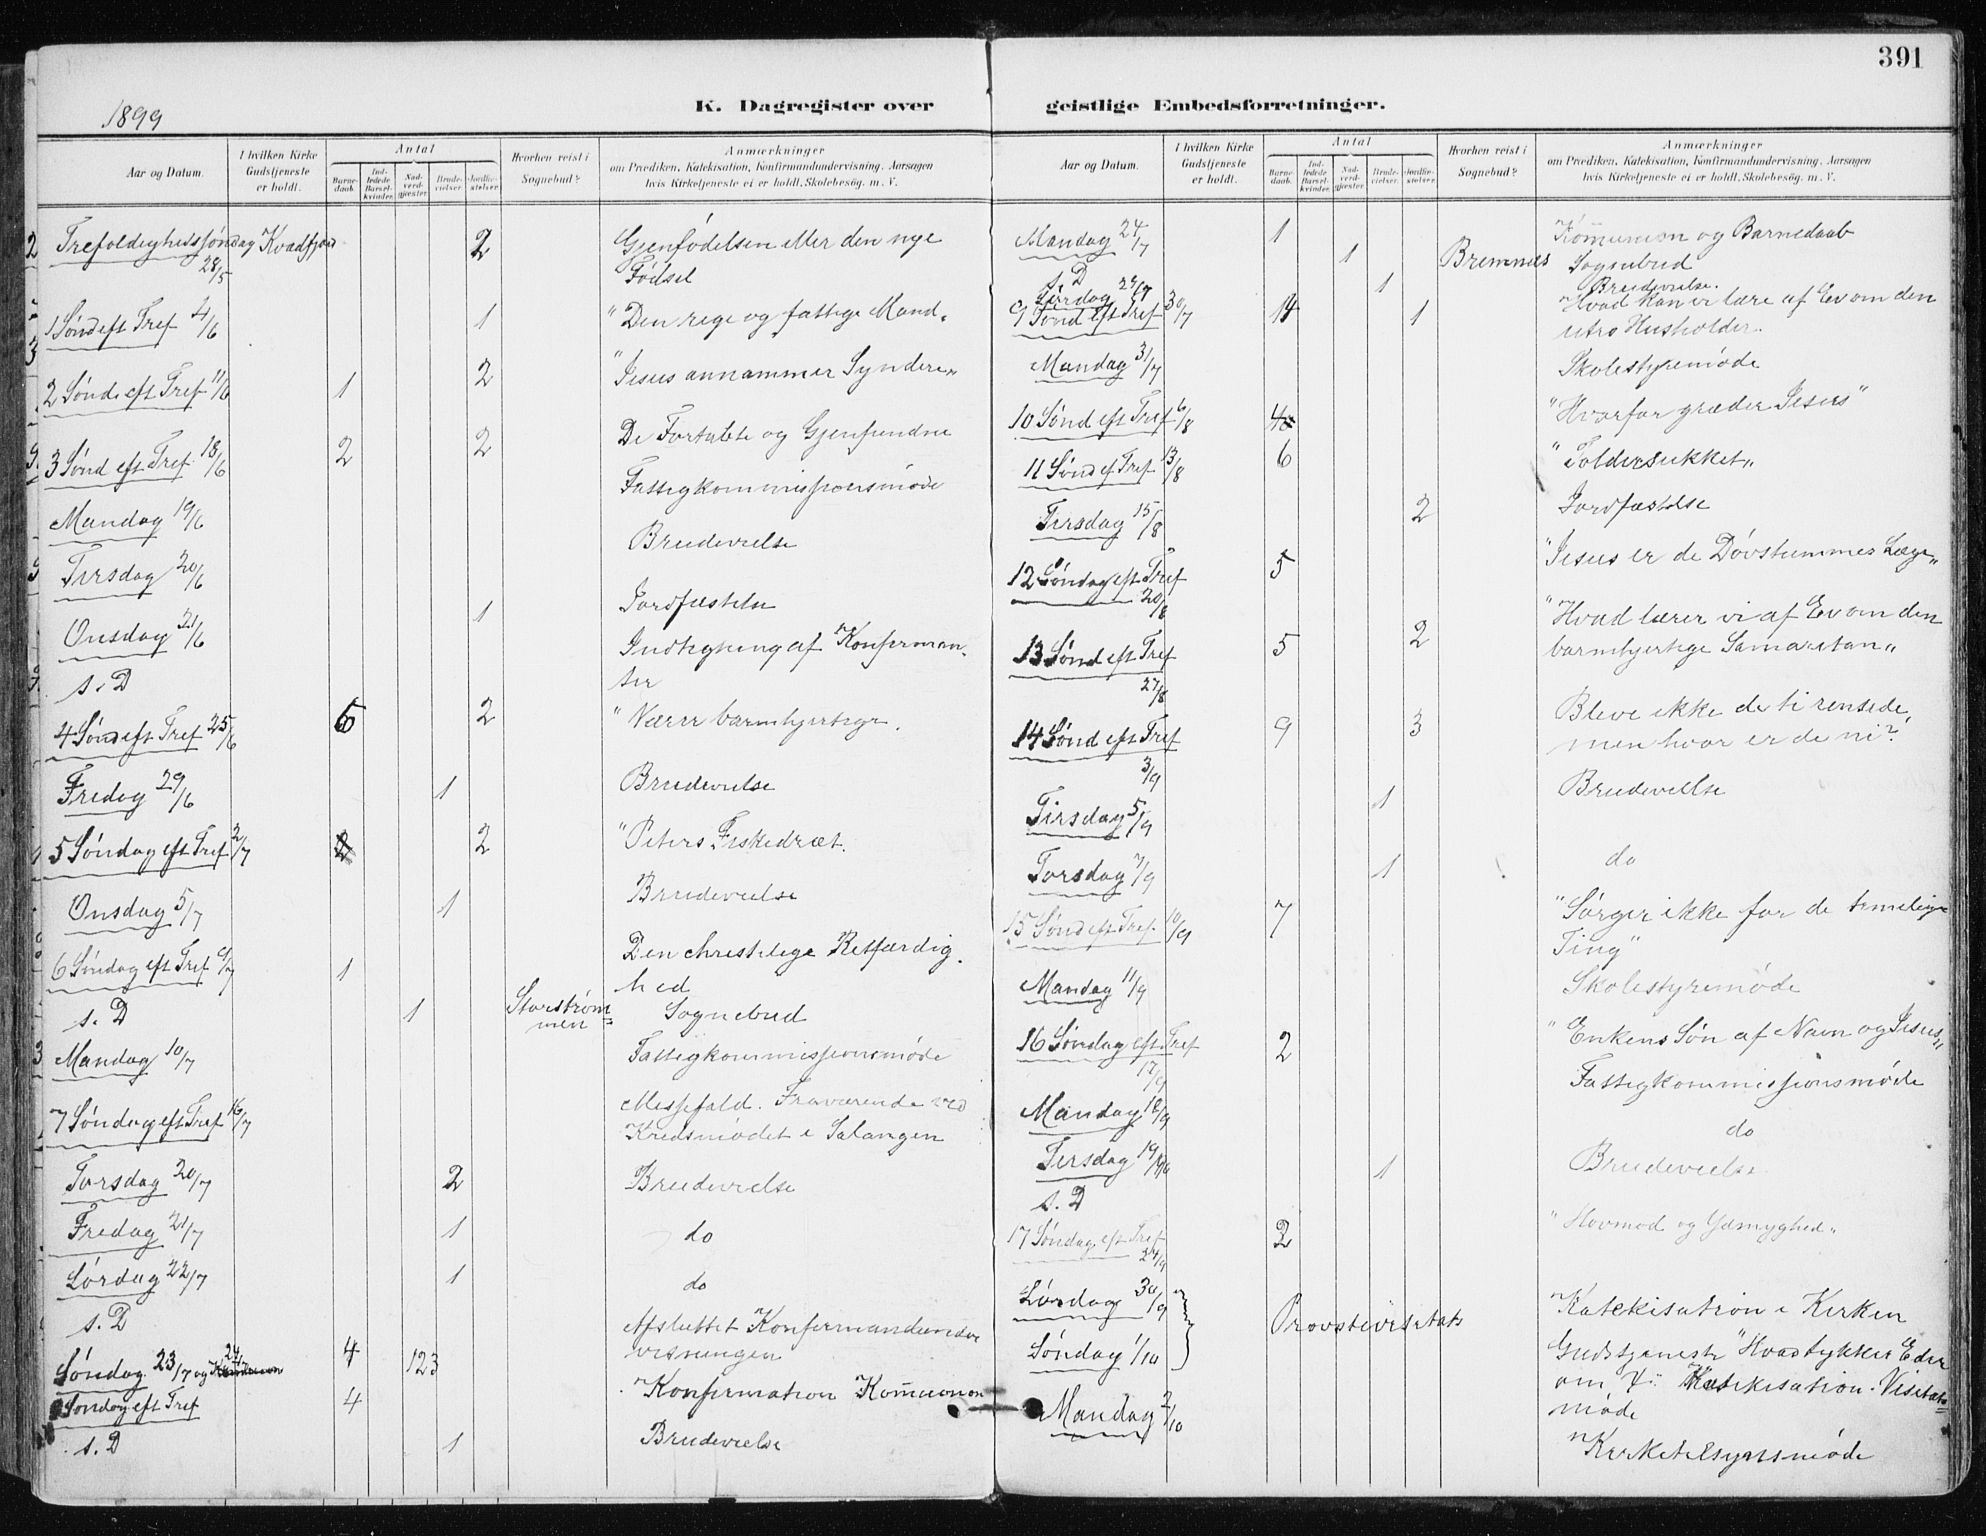 391
1899
K. Dagregister over geistlige Embedsforretninger.
Aar og Datum. I hvilken Kirke Gudstjeneste er holdt. Antal Barnedaab. Indledede Barselkvinder. Nadverdgjester. Brudevielser. Jordfæstelser. Hvorhen reist i Sognebud? Anmærkninger om Prædiken, Katekisation, Konfirmandundervisning, Aarsagen hvis Kirketjeneste ei er holdt, Skolebesøg. m. V.
Trefoldighedssøndag Kvædfjord 2 Gjenfödelsen eller den nye
28/5 Födsel
1 Sønd eft Tref 4/6 1 "Den rige og fattige Mand"
2 Sønd eft Tref 11/6 1 2 "Jesus annammer Syndere"
3 Sønd eft Tref 18/6 2 2 De Fortabte og Gjenfundne
Mandag 19/6 Fattigkommissionsmøde
Tirsdag 20/6 Brudevielse
Onsdag 21/6 1 Jordfæstelse
s. D Indtegning af Konfirman-
ter
4 Sønd eft Tref 25/6 2 "Værer barmhjertige
Fredag 29/6 1 Brudevielse
5 Søndag eft Tref 2/7 2 "Peters Fiskedræt.
Onsdag 5/7 1 Brudevielse
6 Søndag eft Tref 9/7 1 Den christelige Retfærdig-
hed
s. D 1 Storstrøm Sognebud
men
Mandag 10/7 Fattigkommissionsmøde
7 Søndag eft Tref 16/7 Messefald. Fraværende ved
Kredsmødet i Salangen
Torsdag 20/7 2 Brudevielse
Fredag 21/7 1 do
Lørdag 22/7 1 do
s. D Afsluttet Konfirmandunder
visningen
Søndag 23/7 og 24 4 123
Søndag eft Tref 4 Konfirmation Kommunion
s. D 1 Brudevielse
Aar og Datum. I hvilken Kirke Gudstjeneste er holdt. Antal Barnedaab. Indledede Barselkvinder. Nadverdgjester. Brudevielser. Jordfæstelser. Hvorhen reist i Sognebud? Anmærkninger om Prædiken, Katekisation, Konfirmandundervisning, Aarsagen hvis Kirketjeneste ei er holdt, Skolebesøg. m. V.
Mandag 24/7 1 Kommunion og Barnedaab
s. D 1 Bremnes Sognebud
Lørdag 29/7 1 Brudevielse.
9 Sønd eft Tref 30/7 1 Hvad kan vi lære af Ev om den
utro Husholder.
Mandag 31/7 Skolestyremøde
10 Sønd eft Tref 6/8 4 "Hvorfor græder Jesus"
11 Sønd ef Tref 13/8 6 "Toldersukket"
Tirsdag 15/8 2 Jordfæstelse
12 Søndag eft Tref 5 "Jesus er de Døvstummes Læge"
20/8
13 Sønd eft Tref 5 2 "Hvad lærer vi af Ev om den
27/8 barmhjertige Samaritan"
14 Sønd eft Tref 9 3 Bleve ikke de ti rensede,
3/9 men hvor er de ni?
Tirsdag 5/9 1 Brudevielse
Torsdag 7/9 1 do
15 Sønd eft Tref. 10/9 7 "Sørger ikke for de timelige
Ting"
Mandag 11/9 Skolestyremøde
16 Søndag eft Tref 2 "Enkens Søn af Nain og Jesus"
17/9
Mandag 18/9 Fattigkommissionsmøde
Tirsdag 19/9 do
s. D 1 Brudevielse
17 Søndag eft Tref 2 "Hovmod og Ydmyghed"
24/9
Lørdag 30/9 Provstevisitats Katekisation i Kirken
Søndag 1/10 Gudstjeneste "Hvad tykkes Eder
om X" Katekisation. Visitats
møde
Mandag 2/10 Kirketilsynsmøde